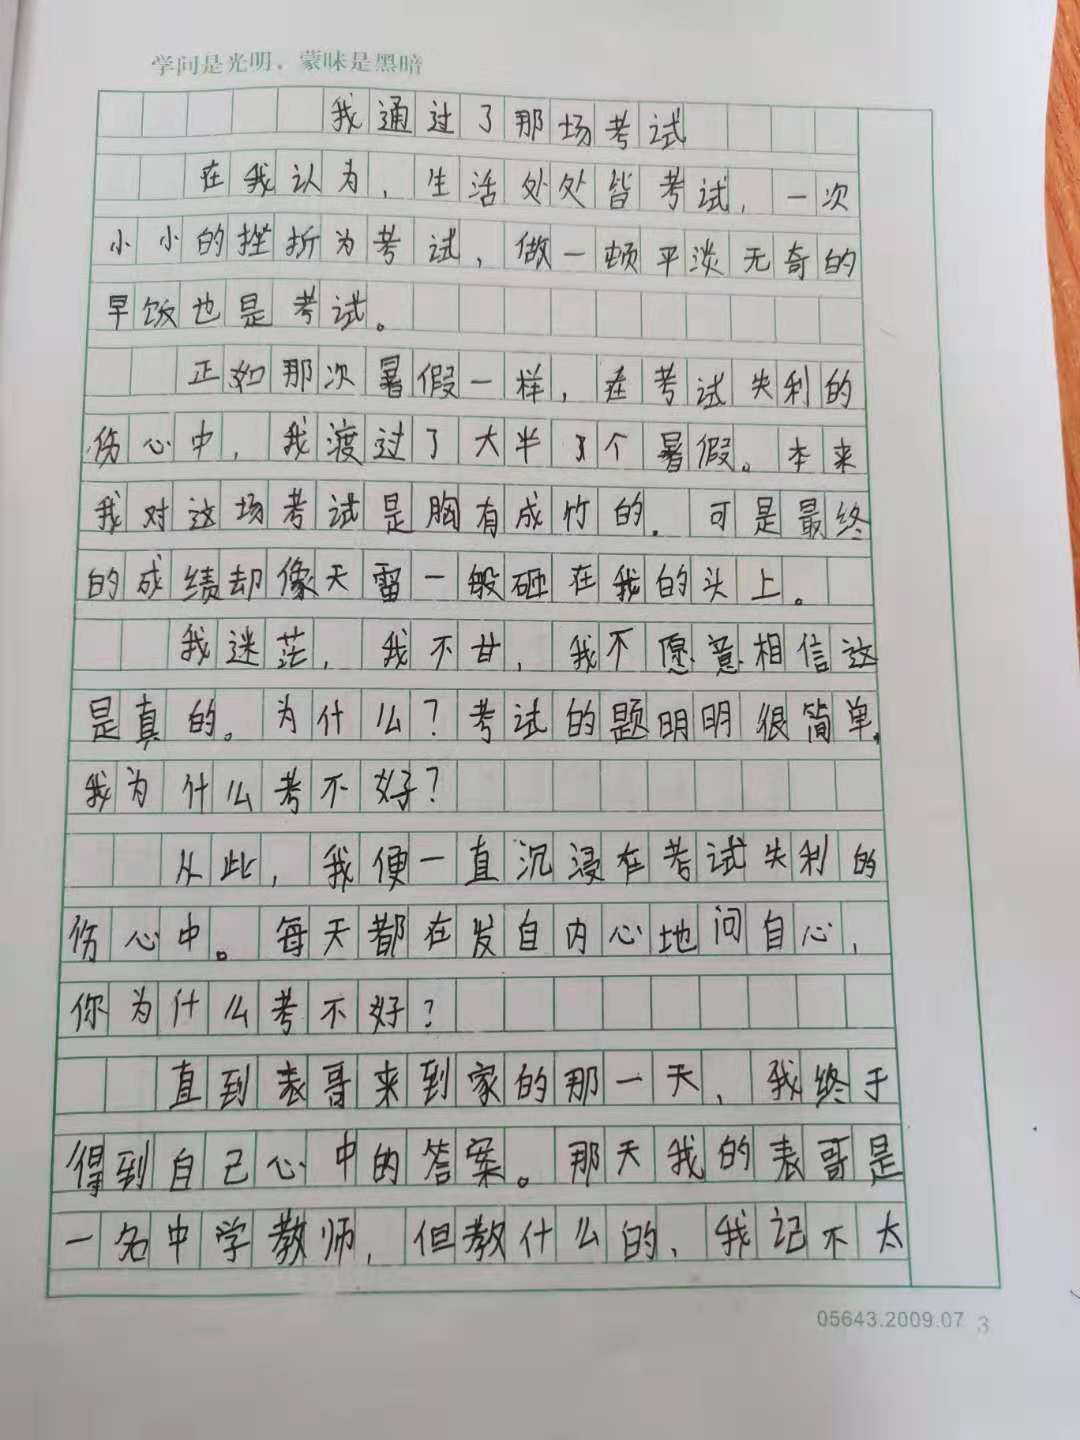 学问是光明，蒙昧是黑暗
我通过了那场考试
在我认为，生活处处皆考试，一次
小小的挫折为考试，做一顿平淡无奇的
早饭也是考试。
正如那次暑假一样，在考试失利的
伤心中，我渡过了大半个暑假。本来
我对这场考试是胸有成竹的．可是最终
的成绩却像天雷一般砸在我的头上。
我迷茫，我不甘，我不愿意相信这
是真的。为什么？考试的题明明很简单，
我为什么考不好？
从此，我便一直沉浸在考试失利的
伤心中。每天都在发自内心地问自心，
你为什么考不好？
直到表哥来到家的那一天，我终于
得到自己心中的答案。那天我的表哥是
一名中学教师，但教什么的，我记不太
05643.2009.07 3